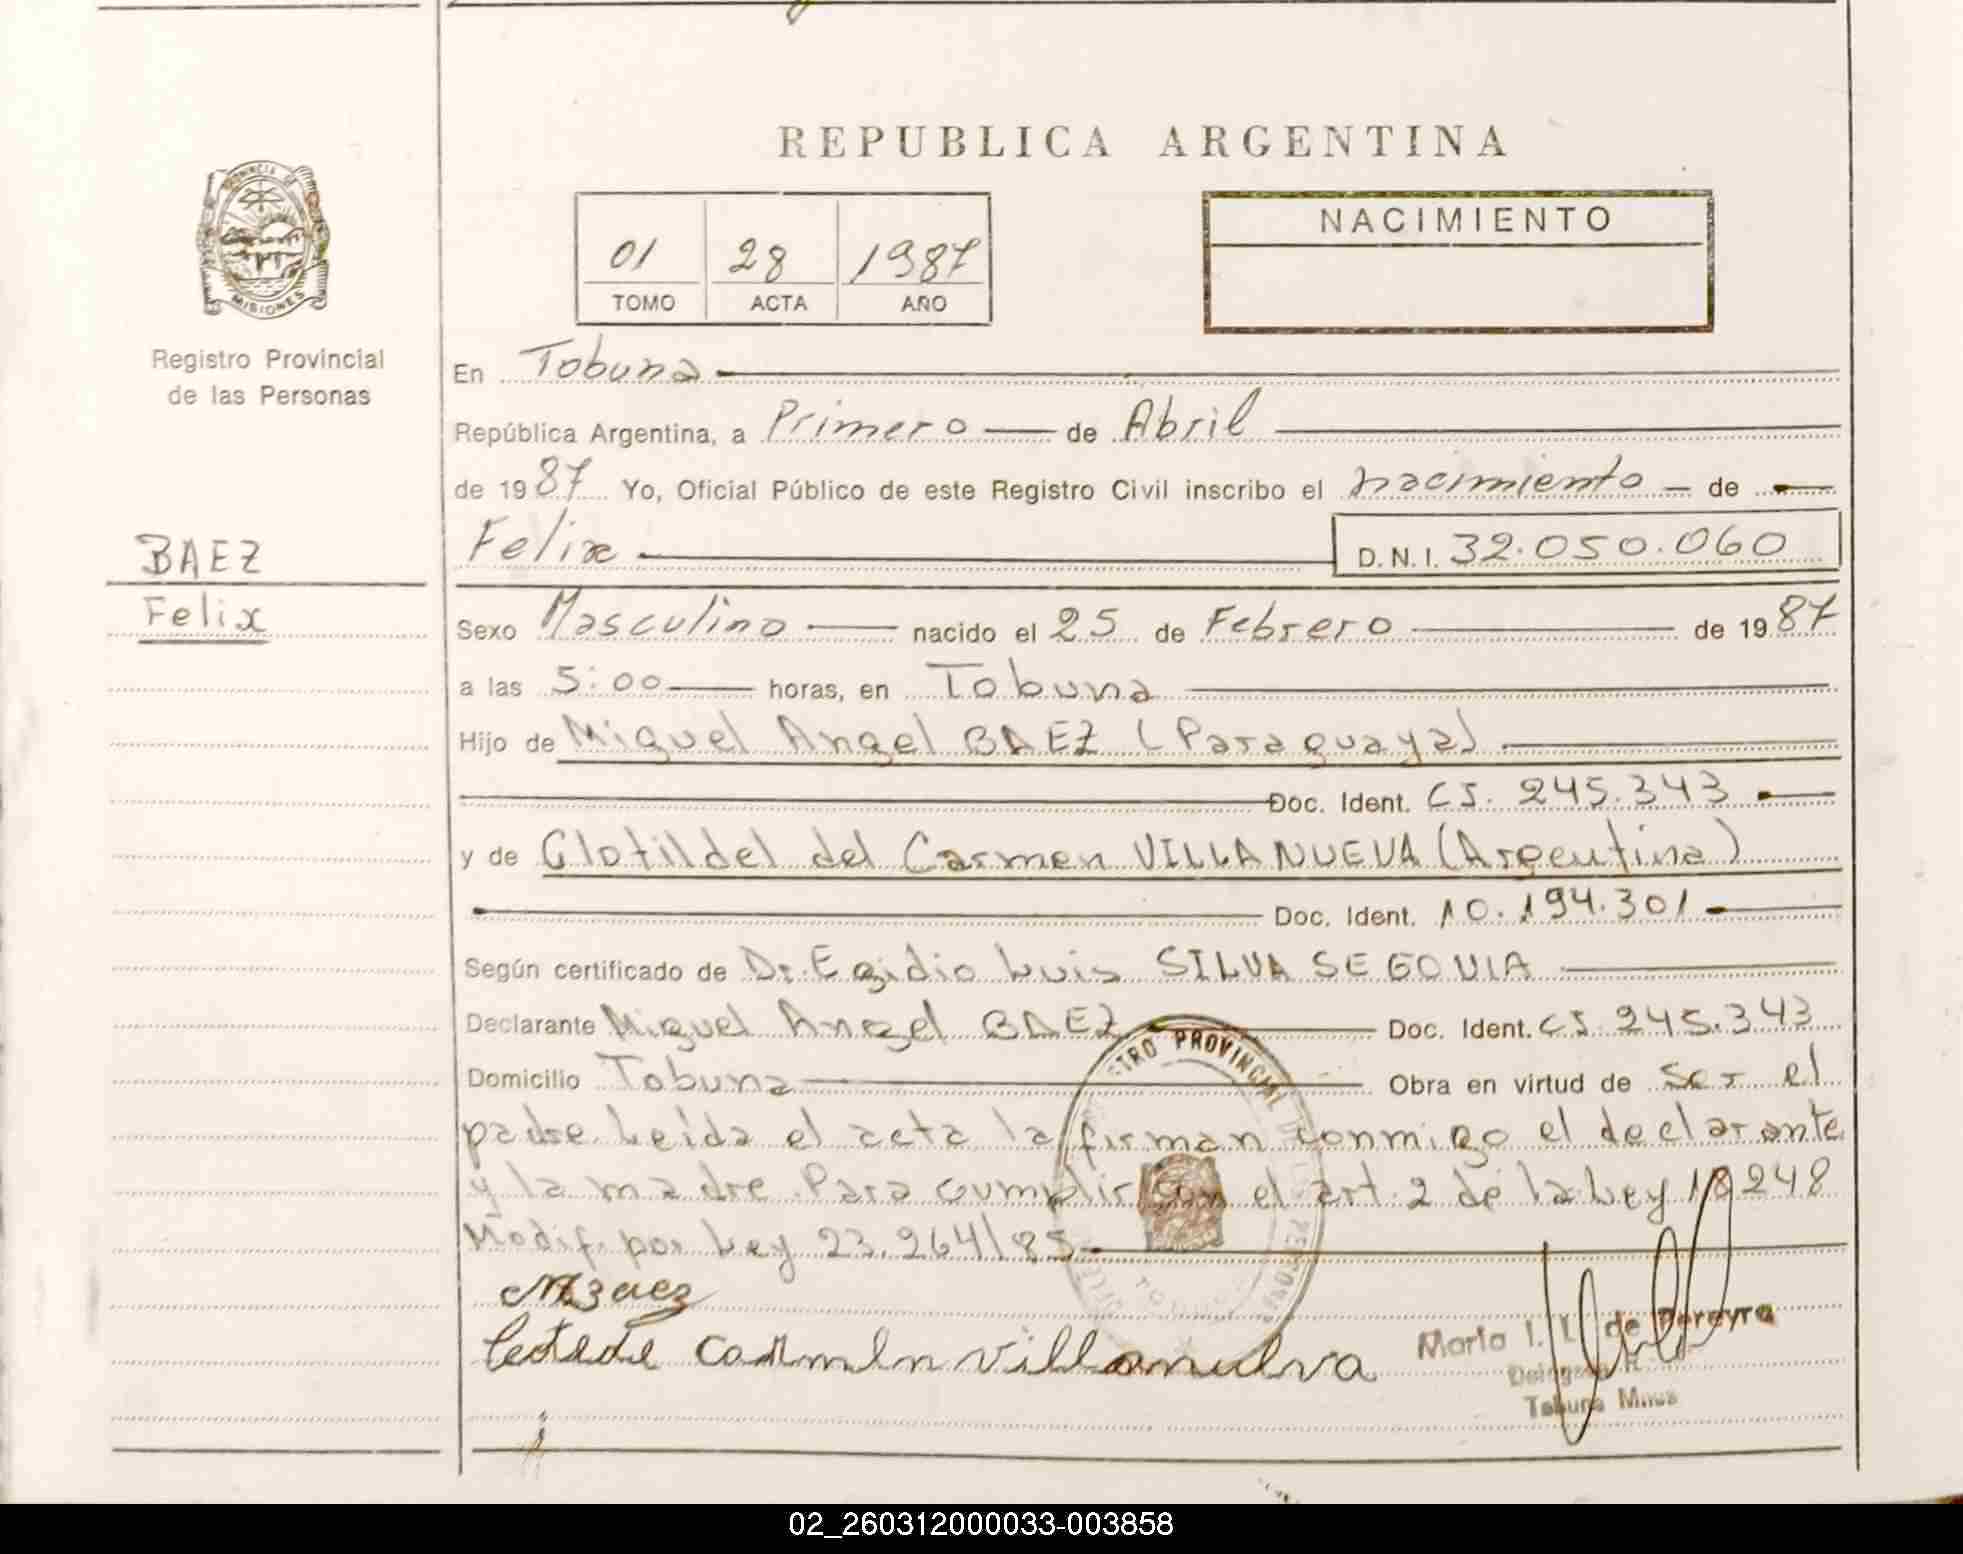 REPUBLICA ARGENTINA
PROVINCIA DE
MISIONES
Registro Provincial
de las Personas
01 28 1987
TOMO ACTA AÑO
NACIMIENTO
En Tobuna
República Argentina, a Primero de Abril
de 1987 Yo, Oficial Público de este Registro Civil inscribo el nacimiento de
Felix D.N.I. 32.050.060
BAEZ
Felix
Sexo Masculino nacido el 25 de Febrero de 1987
a las 5:00 horas, en Tobuna
Hijo de Miguel Angel BAEZ (Paraguaya)
Doc. Ident. CI. 245.343
y de Clotildel del Carmen VILLANUEVA (Argentina)
Doc. Ident. 10.194.301
Según certificado de Dr. Egidio Luis SILVA SEGOVIA
Declarante Miguel Angel BAEZ Doc. Ident. CI. 245.343
Domicilio Tobuna Obra en virtud de Ser el
padre. Leída el acta la firman conmigo el declarante
y la madre. Para cumplir con el art. 2 de la Ley 18248
Modif. por Ley 23.264/85
MBaez
Carmen Villanueva
de Pereyra
Tobuna Mnes
02_260312000033-003858